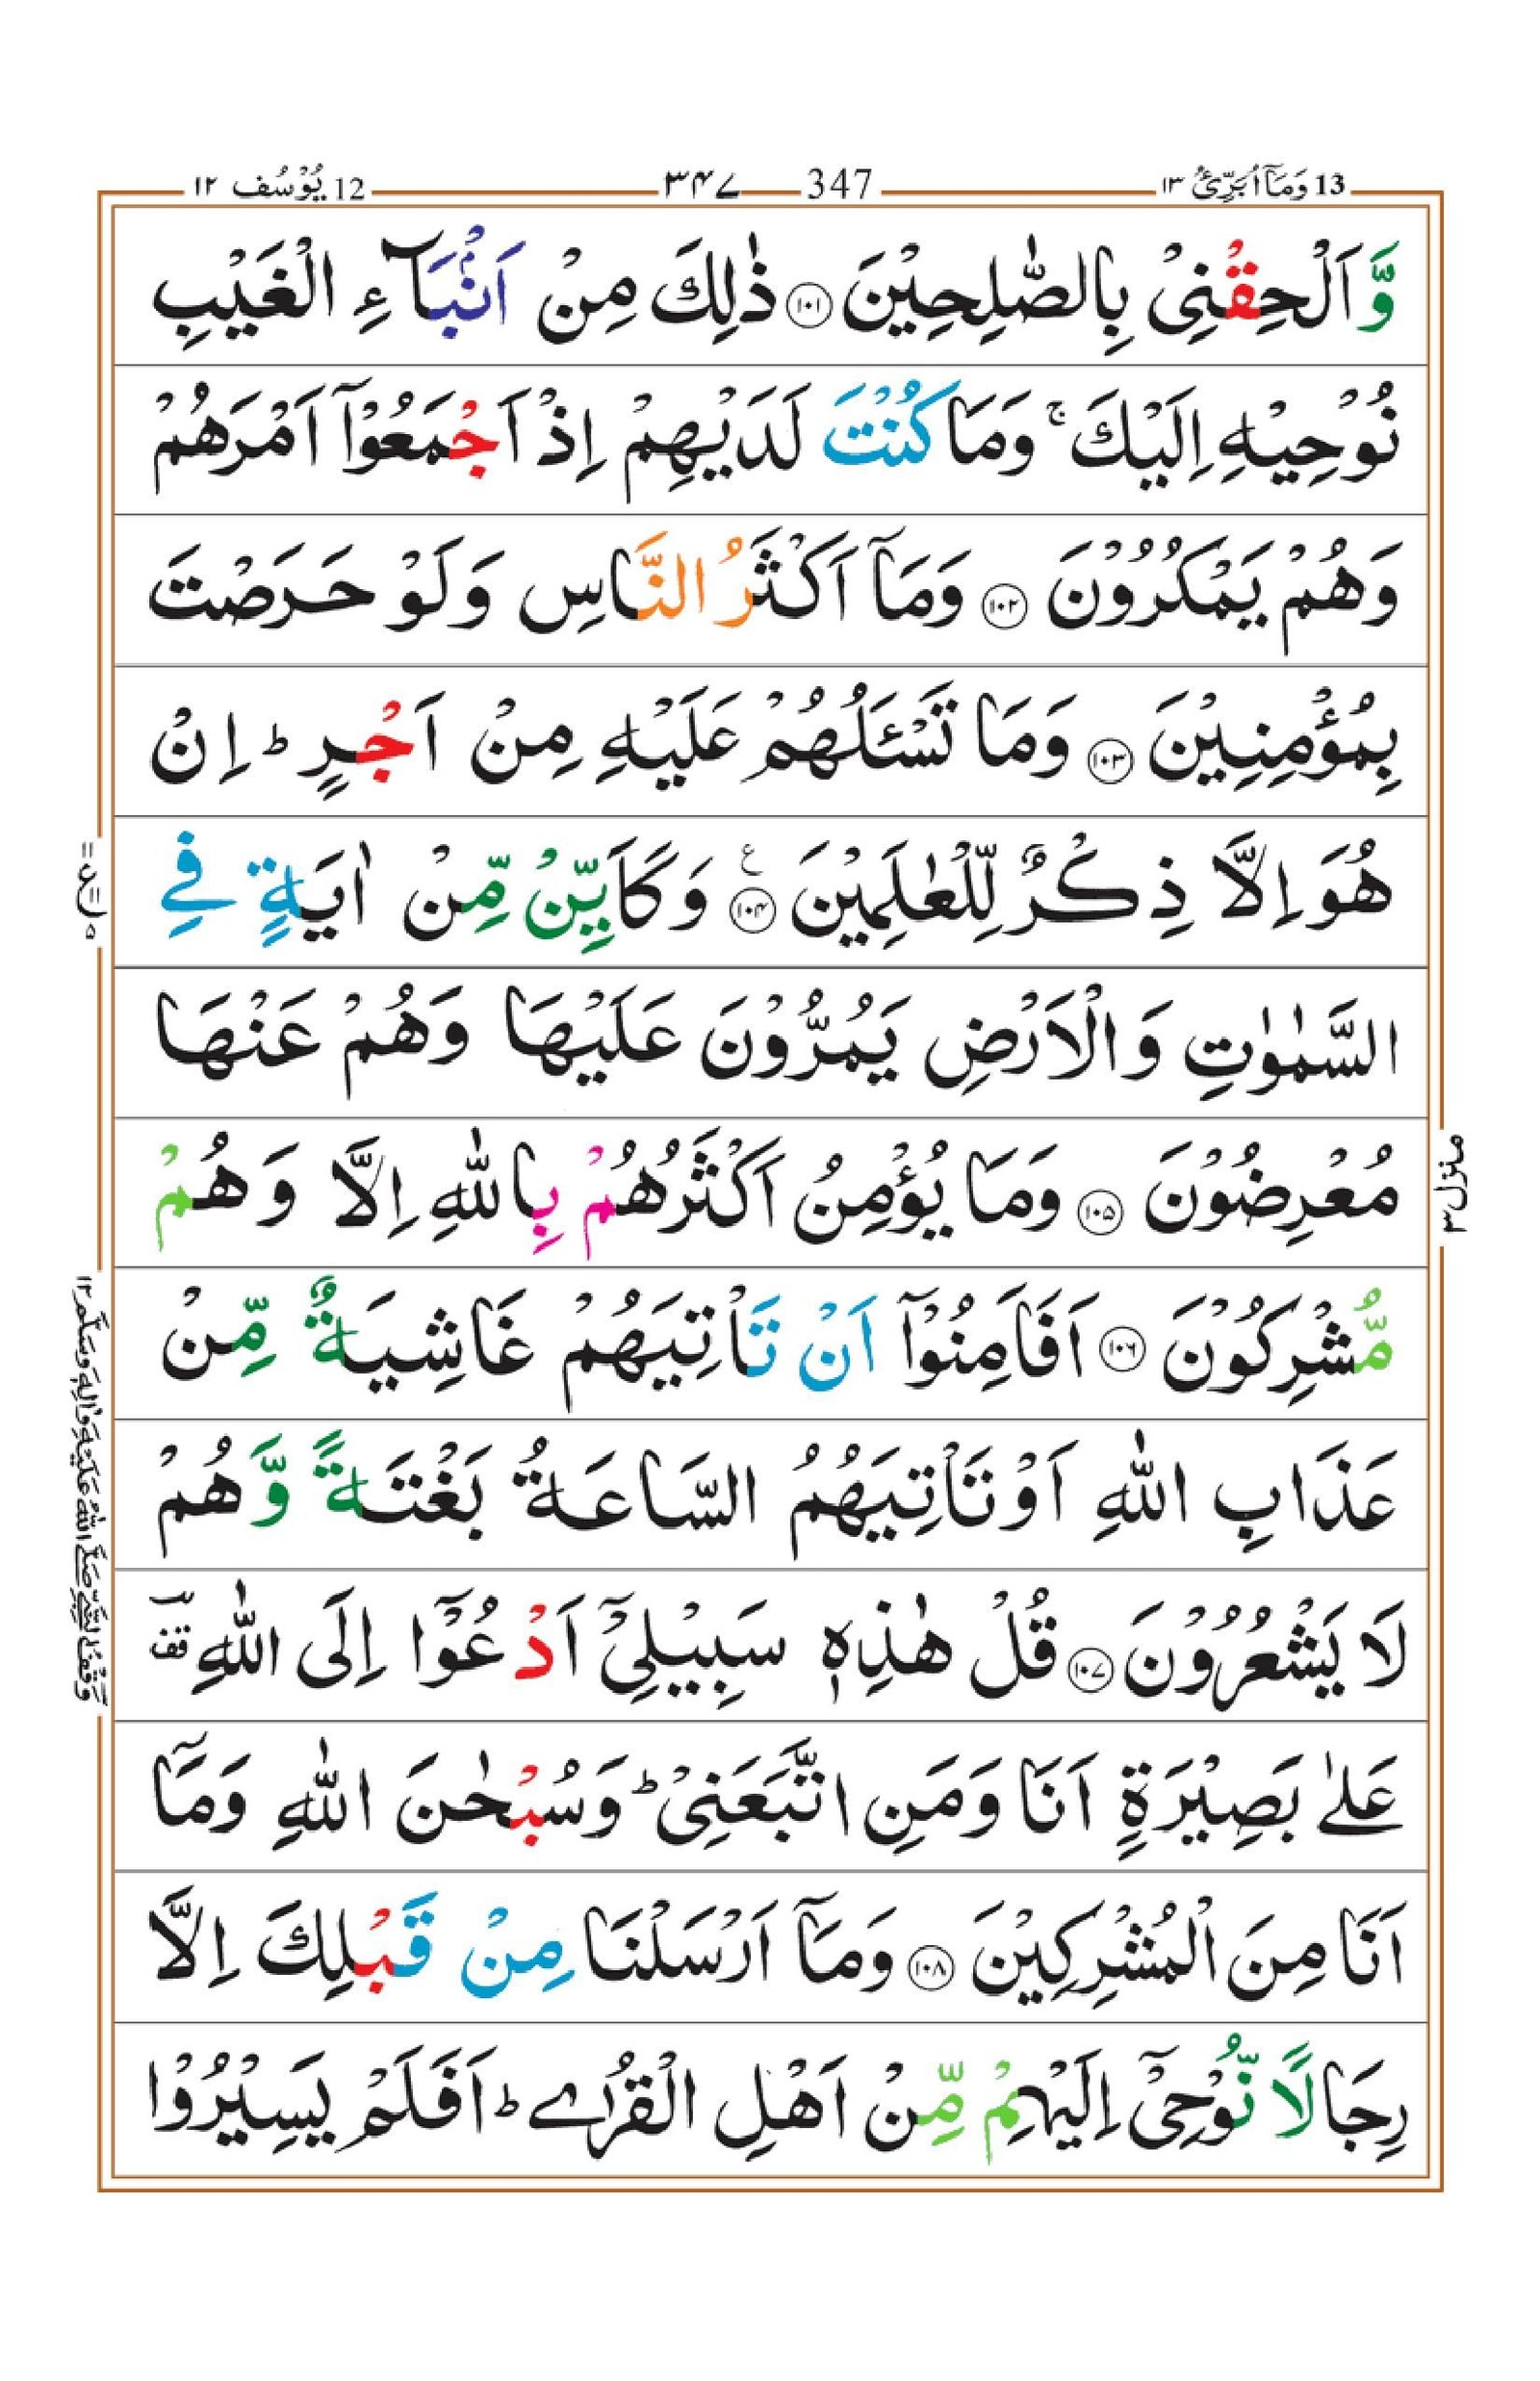 13 وَمَآ اُبَرِّئُ ١٣ 347 ٣٤٧ 12 يُوْسُف ١٢
وَّ اَلْحِقْنِىْ بِالصّٰلِحِيْنَ ۝١٠١ ذٰلِكَ مِنْ اَنْۢبَآءِ الْغَيْبِ
نُوْحِيْهِ اِلَيْكَ ۚ وَمَا كُنْتَ لَدَيْهِمْ اِذْ اَجْمَعُوْٓا اَمْرَهُمْ
وَهُمْ يَمْكُرُوْنَ ۝١٠٢ وَمَآ اَكْثَرُ النَّاسِ وَلَوْ حَرَصْتَ
بِمُؤْمِنِيْنَ ۝١٠٣ وَمَا تَسْـَٔلُهُمْ عَلَيْهِ مِنْ اَجْرٍ ؕ اِنْ
هُوَ اِلَّا ذِكْرٌ لِّلْعٰلَمِيْنَ ۝١٠٤ ع وَكَاَيِّنْ مِّنْ اٰيَةٍ فِى
السَّمٰوٰتِ وَالْاَرْضِ يَمُرُّوْنَ عَلَيْهَا وَهُمْ عَنْهَا
مُعْرِضُوْنَ ۝١٠٥ وَمَا يُؤْمِنُ اَكْثَرُهُمْ بِاللّٰهِ اِلَّا وَهُمْ
مُّشْرِكُوْنَ ۝١٠٦ اَفَاَمِنُوْٓا اَنْ تَاْتِيَهُمْ غَاشِيَةٌ مِّنْ
عَذَابِ اللّٰهِ اَوْ تَاْتِيَهُمُ السَّاعَةُ بَغْتَةً وَّهُمْ
لَا يَشْعُرُوْنَ ۝١٠٧ قُلْ هٰذِهٖ سَبِيْلِىْٓ اَدْعُوْٓا اِلَى اللّٰهِ قف
عَلٰى بَصِيْرَةٍ اَنَا وَمَنِ اتَّبَعَنِىْ ؕ وَسُبْحٰنَ اللّٰهِ وَمَآ
اَنَا مِنَ الْمُشْرِكِيْنَ ۝١٠٨ وَمَآ اَرْسَلْنَا مِنْ قَبْلِكَ اِلَّا
رِجَالًا نُّوْحِىْٓ اِلَيْهِمْ مِّنْ اَهْلِ الْقُرٰى ؕ اَفَلَمْ يَسِيْرُوْا
منزل ٣
وَقْفُ النَّبِىِّ صَلَّى اللّٰهُ عَلَيْهِ وَاٰلِهٖ وَسَلَّم ١٢